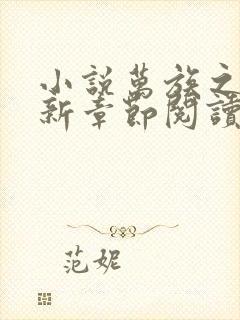 小說萬族之
新章節閱讀
范妮